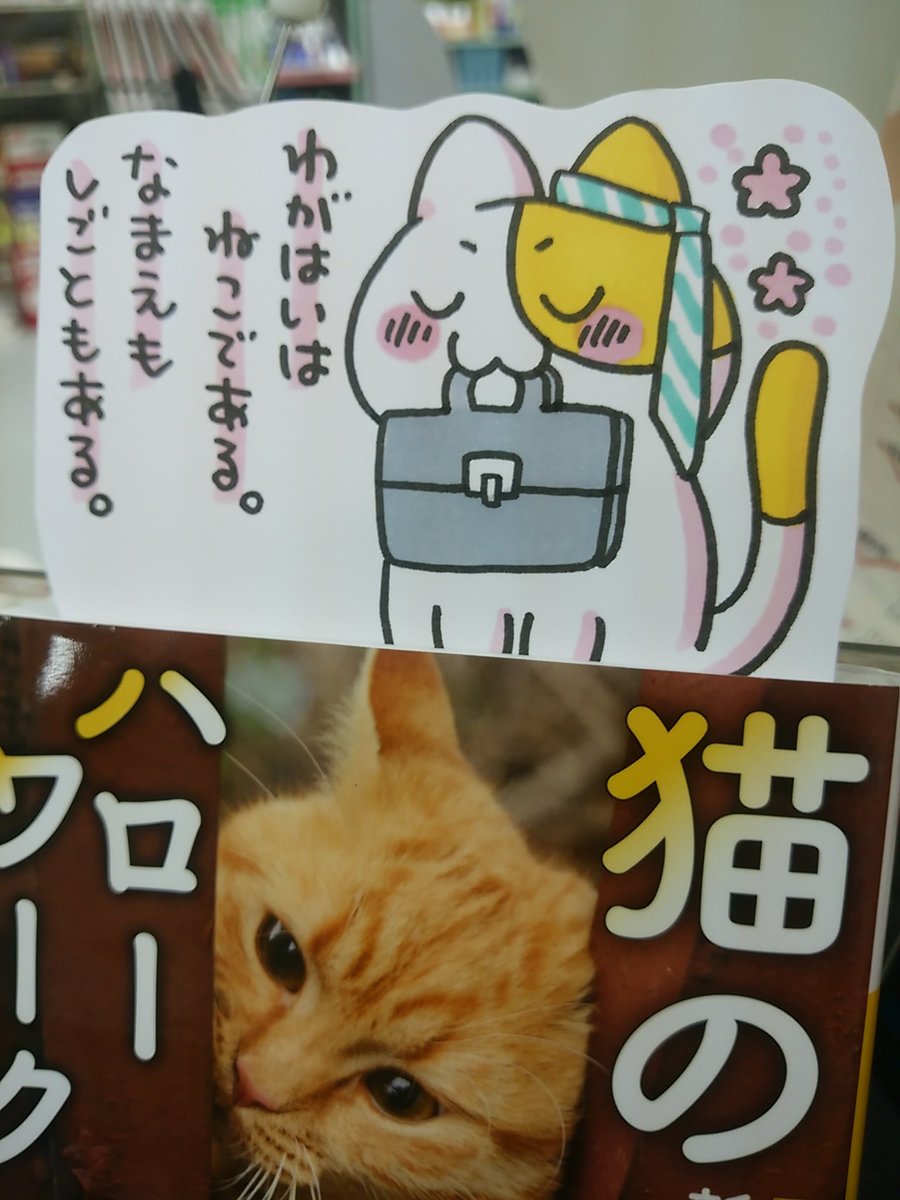 わがはいは
ねこである。
なまえも
しごともある。
猫の
ハロー
ワーク